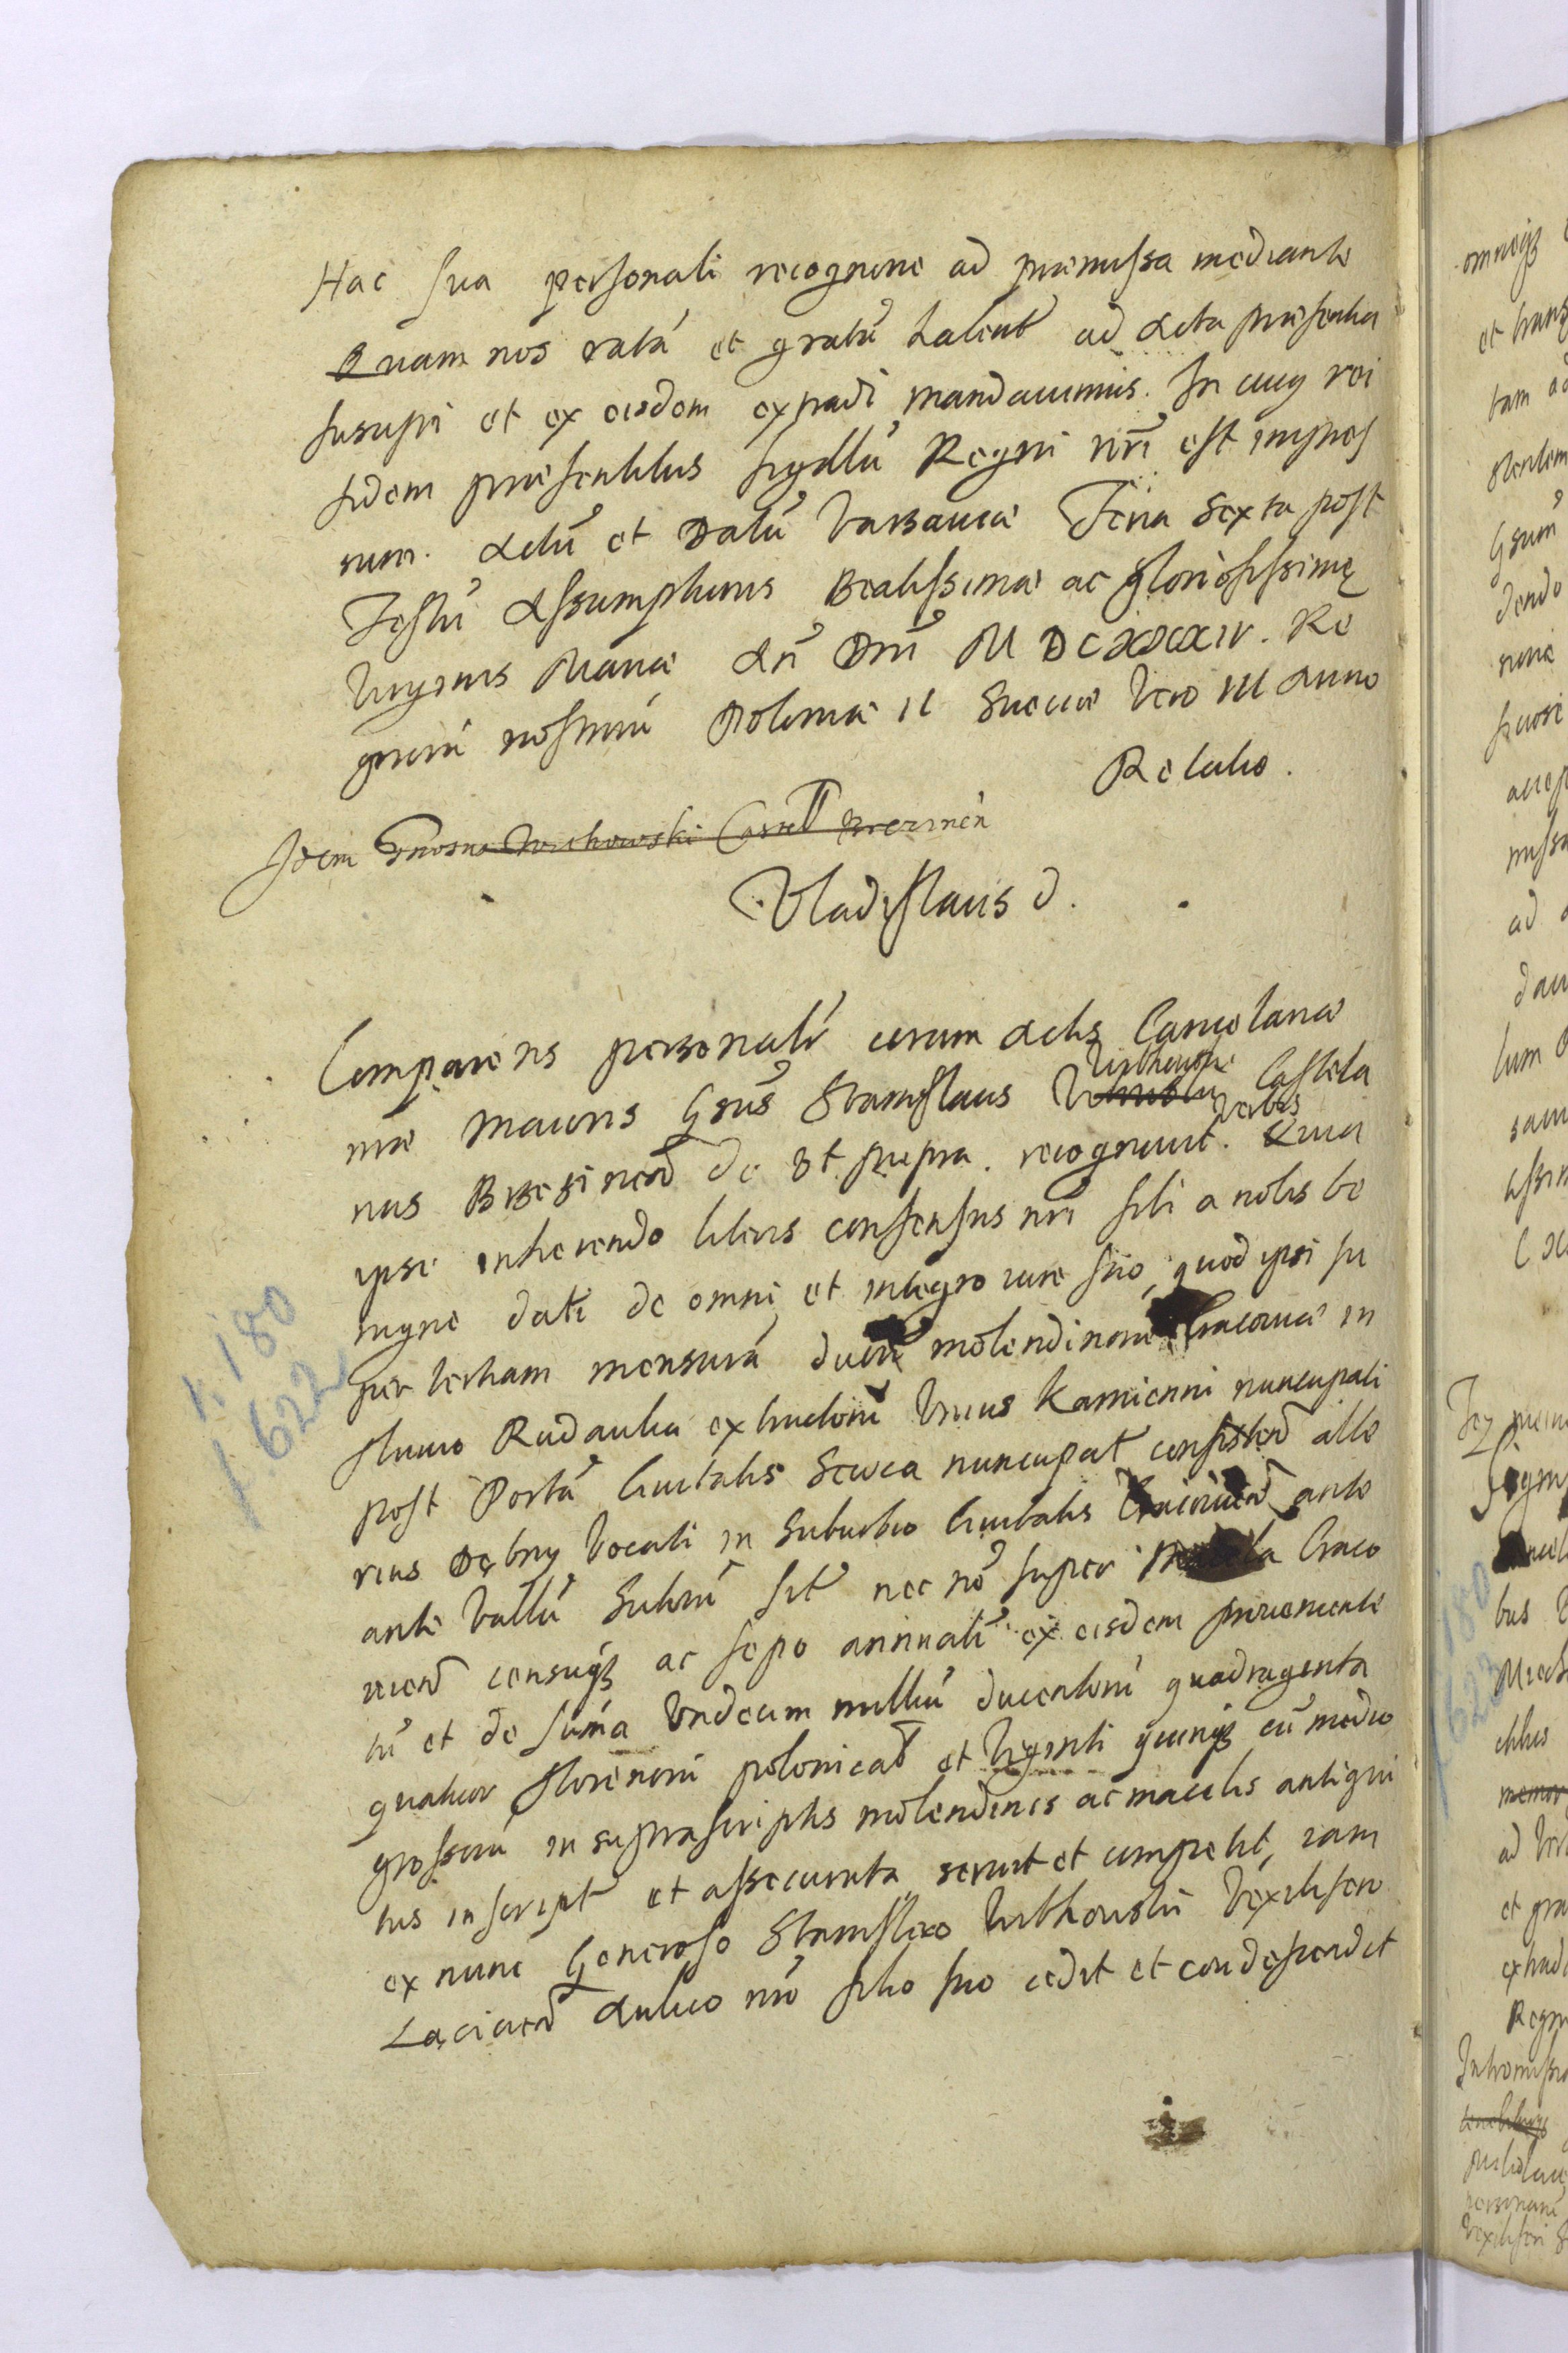 Hac sua personali recognitione ad praemissa mediante
Quam nos ratã et gratũ habent̃ ad Acta praesentia
suscipi et ex eisdem extradi mandavimus. In cuiꝫ rei
fidem praesentibus sigillũ Regni nr̃i est impres
sum. Actũ et Datũ Varsaviae Feria Sexta post
Festũ Assumptionis Beatissimae ac Gloriosissimę
Virginis Mariae An̄ Dn̄i M DCXXXIV. Re
gnorũ nostrorũ Poloniae II Sueciae Vero III Anno
Relatio.
Idem Gnosus Wichowski Castell Brezinen̄
Vladislaus
Comparens personalr̃ coram Actis Cancelariae
nrae maioris Gsũs Stanislaus
Virzbowski Castela
nus Brzezinen̄ de st supra. recognovit. verbis Quia
ipse inherendo literis consensus nr̃i sibi a nobis be
nigne dati de omni et integro iure suo, quod ipsi su
per tertiam mensurã duorũ molendinorũ Cracoviae in
fluvio Rudavka extructorũ Unius Kamienni nuncupati
post Portã Civitatis Sewca nuncupat̃ consisten̄ alte
rius Dębny vocati in suburbio Civitatis Cracovien̄ ante
ante Vallũ Sutorũ sit̃ nec nõ super Macela Craco
vien̄ censuqꝫ ac sepo annuali ex eisdem provenienti
tũ et de sum̃a Undecim milliũ ducentorũ quadraginta
quatuor florenorũ polonical̃ et Viginti quinqꝫ cũ medio
grossorũ in suprascriptis molendinis ac macelis antiqui
tus inscript̃ et assecurata servit et competit, iam
ex nunc Generoso Stanislao Virzbowski Vexilifero
Lacicien̄ Aulico nr̃o filio suo cedit et condescendit
1.180
1.622